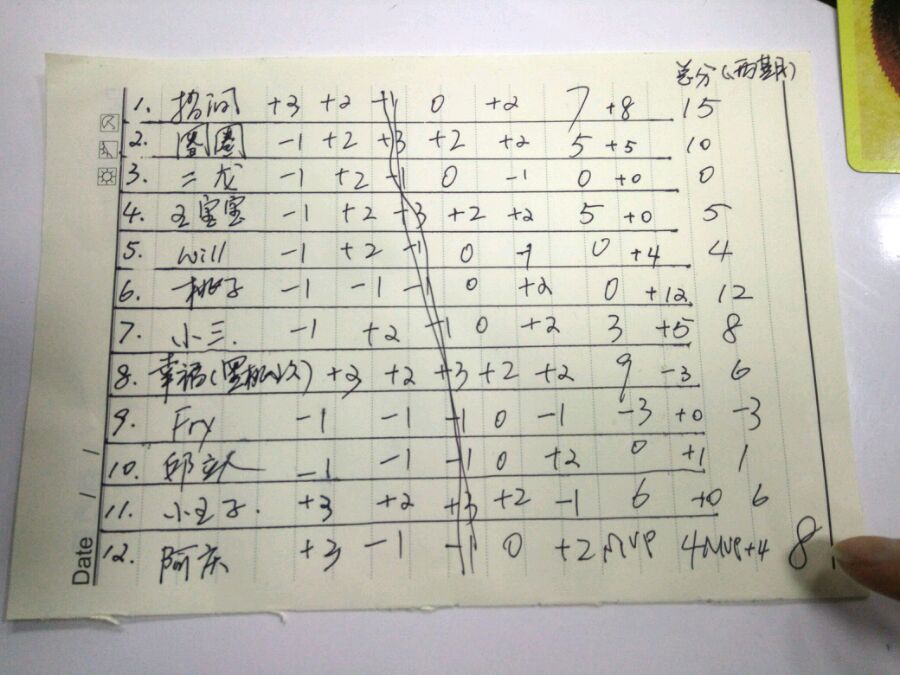 总分(两期)
1. 杨阳 +3 +2 +1 0 +2 7 +8 15
2. 圈圈 -1 +2 +3 +2 +2 5 +5 10
3. 二龙 -1 +2 -1 0 -1 0 +0 0
4. 王宝宝 -1 +2 -3 +2 +2 5 +0 5
5. will -1 +2 -1 0 -1 0 +4 4
6. 桃子 -1 -1 -1 0 +2 0 +12 12
7. 小三. -1 +2 -1 0 +2 3 +5 8
8. 幸福( ) +3 +2 +3 +2 +2 9 -3 6
9. Fry -1 -1 -1 0 -1 -3 +0 -3
10. 邱 -1 -1 -1 0 +2 0 +1 1
11. 小王子. +3 +2 +3 +2 -1 6 +0 6
12. 阿庆 +3 -1 -1 0 +2 MVP 4 MVP+4 8
Date / /